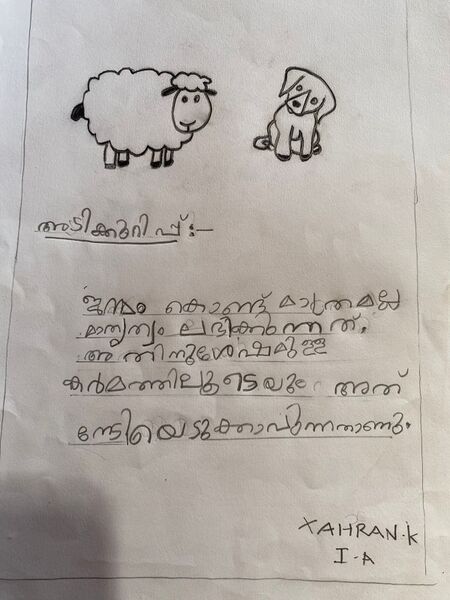 അടിക്കുറിപ്പ് :-
ജന്മം കൊണ്ട് മാത്രമല്ല
മാതൃത്വം ലഭിക്കുന്നത്.
അതിനുശേഷമുള്ള
കർമത്തിലൂടെയും അത്
നേടിയെടുക്കാവുന്നതാണ്.
XAHRAN.K
I-A